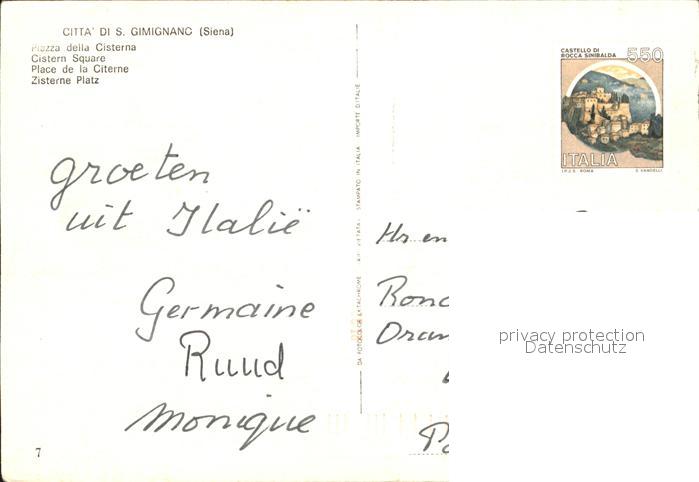 CITTA' DI S. GIMIGNANO (Siena)
Piazza della Cisterna
Cistern Square
Place de la Citerne
Zisterne Platz
CASTELLO DI
ROCCA SINIBALDA
550
ITALIA
I.P.Z.S. ROMA
E. VANGELLI
groeten
uit Italië
Germaine
Ruud
Monique
7
DA FOTOCOLOR EKTACHROME
STAMPATO IN ITALIA
IMPORTE D'ITALIE
Hr en
privacy protection
Datenschutz